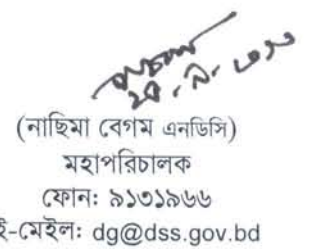 (নাছিমা বেগম এনডিসি)
মহাপরিচালক
ফোন: ৯১৩১৯৬৬
ই-মেইল: dg@dss.gov.bd